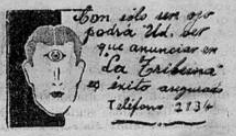 Con sólo un ojo
podrá Ud. ver
que anunciar en
"La Tribuna"
es éxito augurado
Teléfono 2134